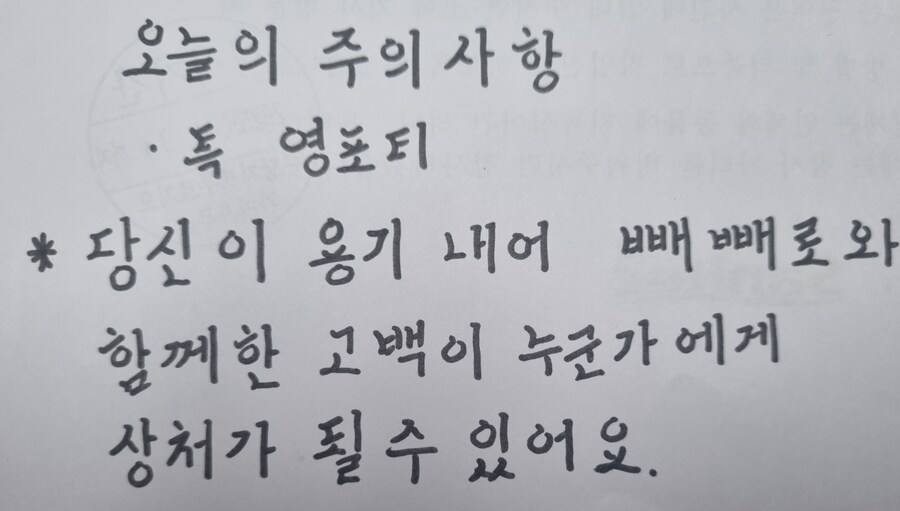 오늘의 주의사항
· 특 영포티
* 당신이 용기 내어 빼빼로와
함께한 고백이 누군가에게
상처가 될 수 있어요.